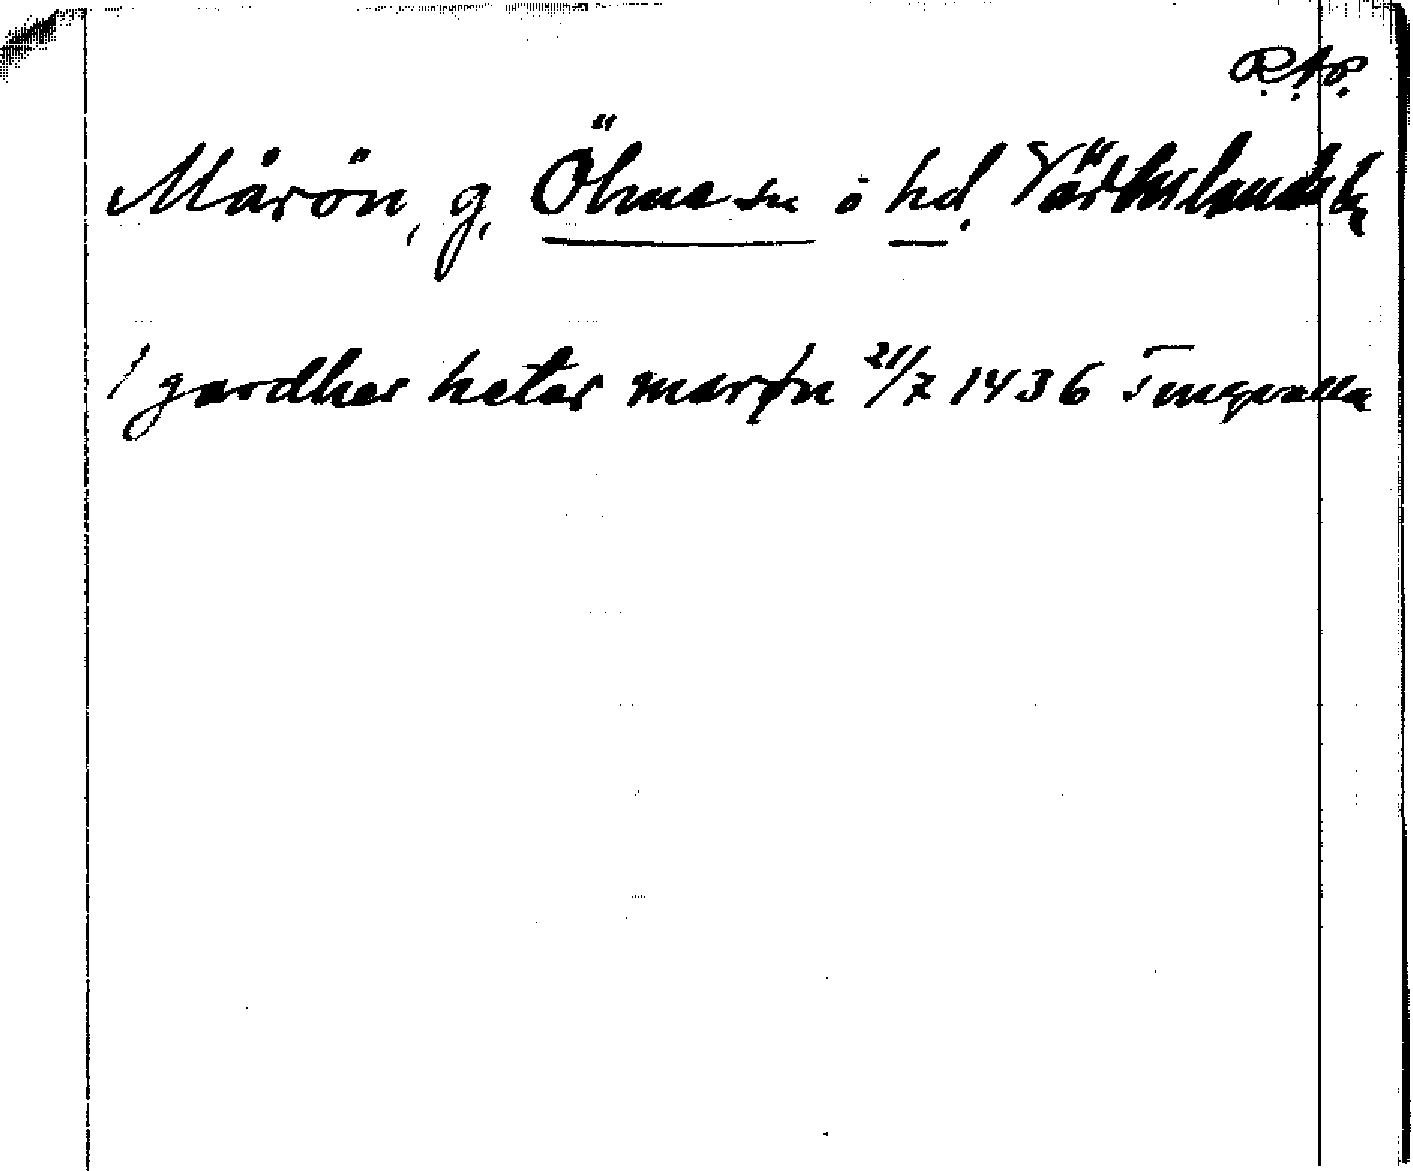 R.A.P.
Mårön, g, Ölme sn o hd. Värmlands l.
1 gardher heter marøn 21/7 1436 Tingvalla